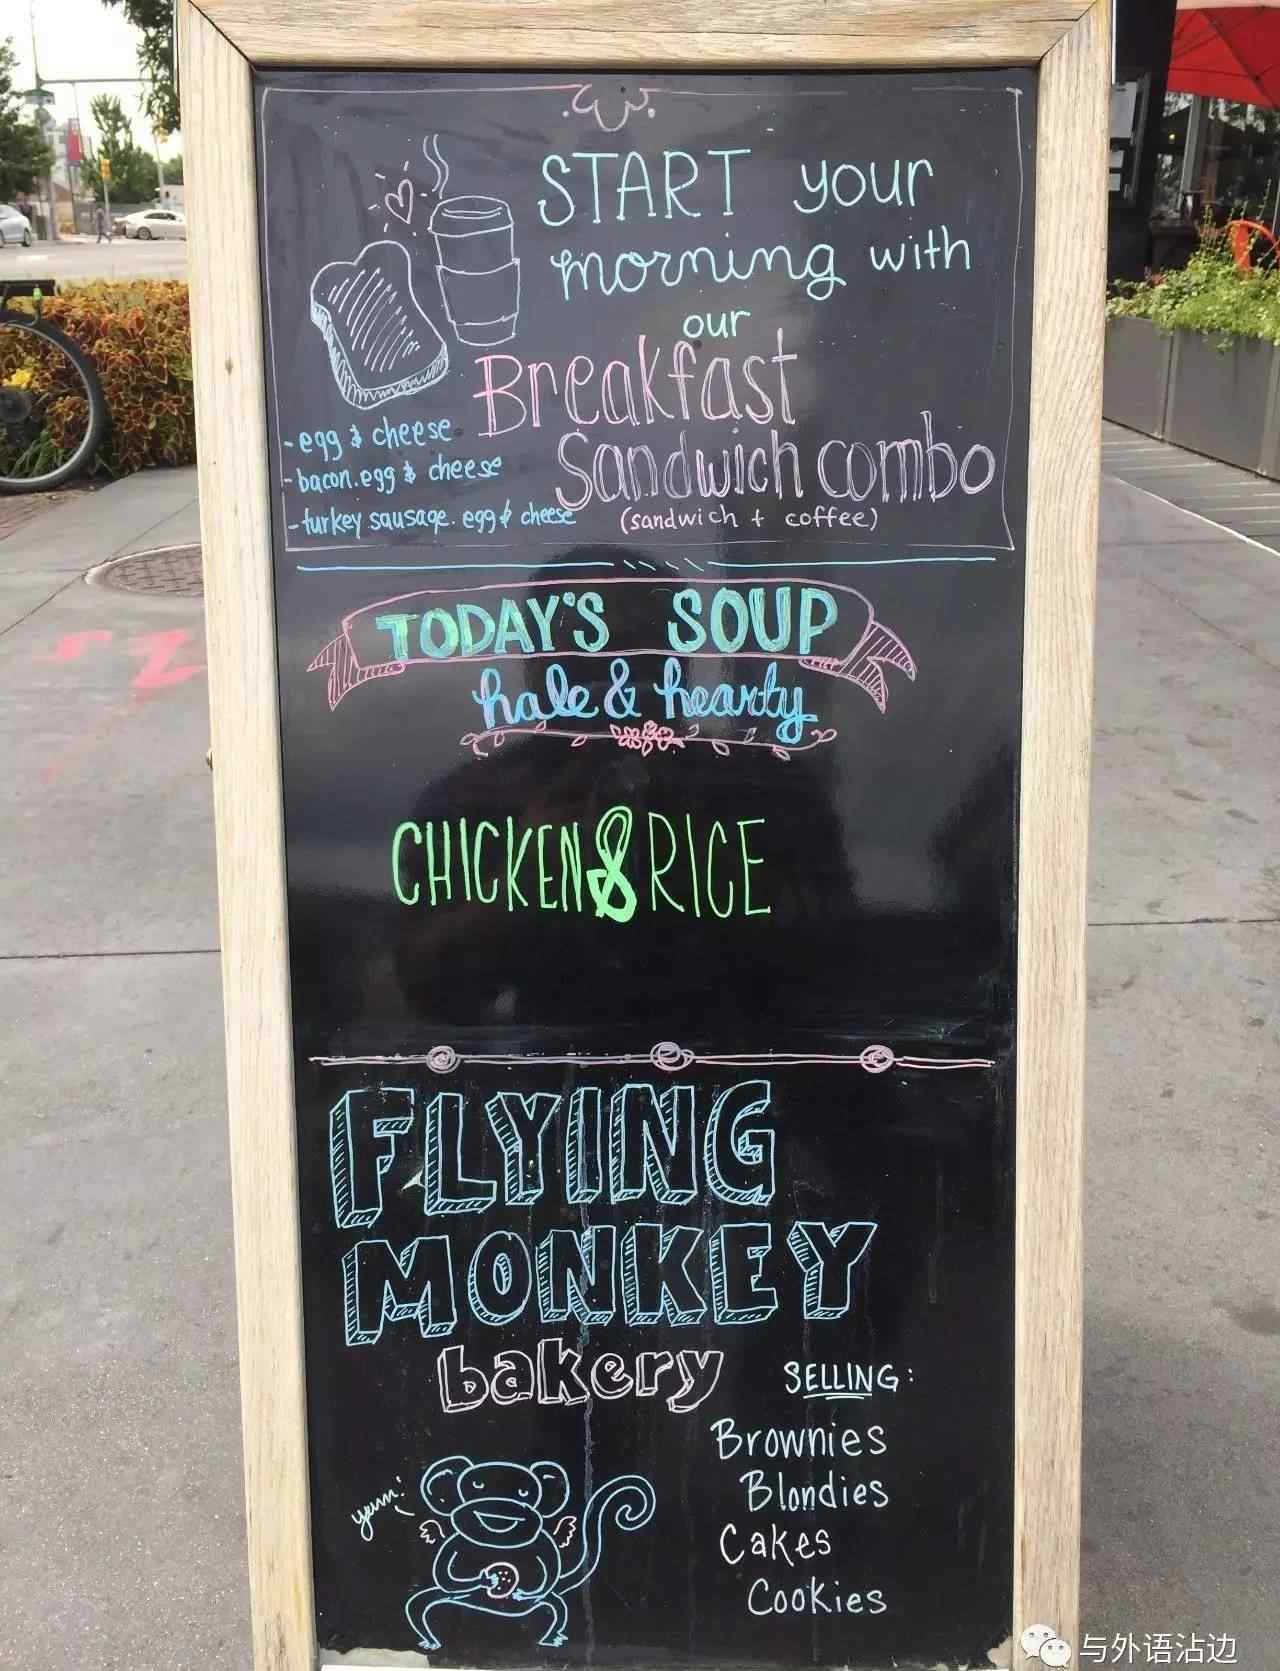 START your
morning with
our
Breakfast
Sandwich combo
(sandwich + coffee)
- egg & cheese
- bacon. egg & cheese
- turkey sausage. egg & cheese
TODAY'S SOUP
hale & hearty
CHICKEN & RICE
FLYING
MONKEY
bakery
SELLING:
Brownies
Blondies
Cakes
Cookies
yum!
与外语沾边